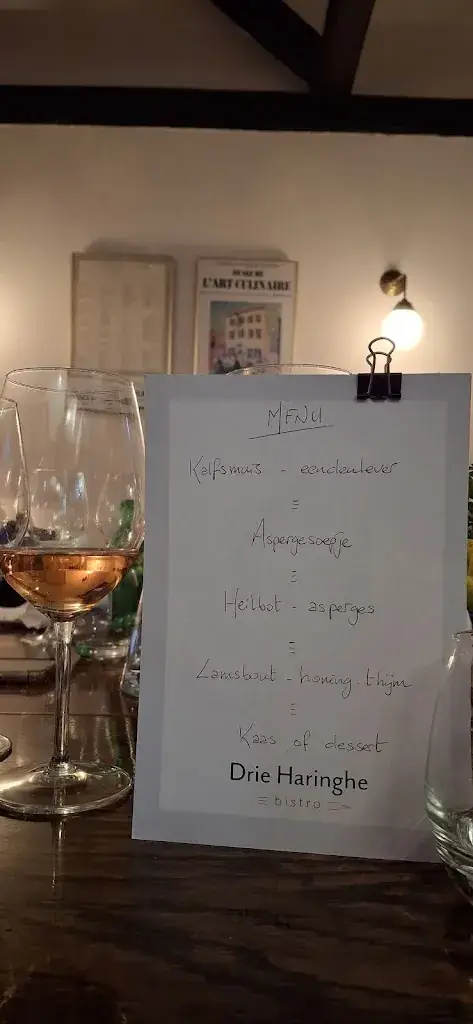 MUSÉE DE
L'ART CULINAIRE
MENU
Kalfsmuis - eendenlever
Aspergesoepje
Heilbot - asperges
Lamsbout - honing - thijm
Kaas of dessert
Drie Haringhe
bistro